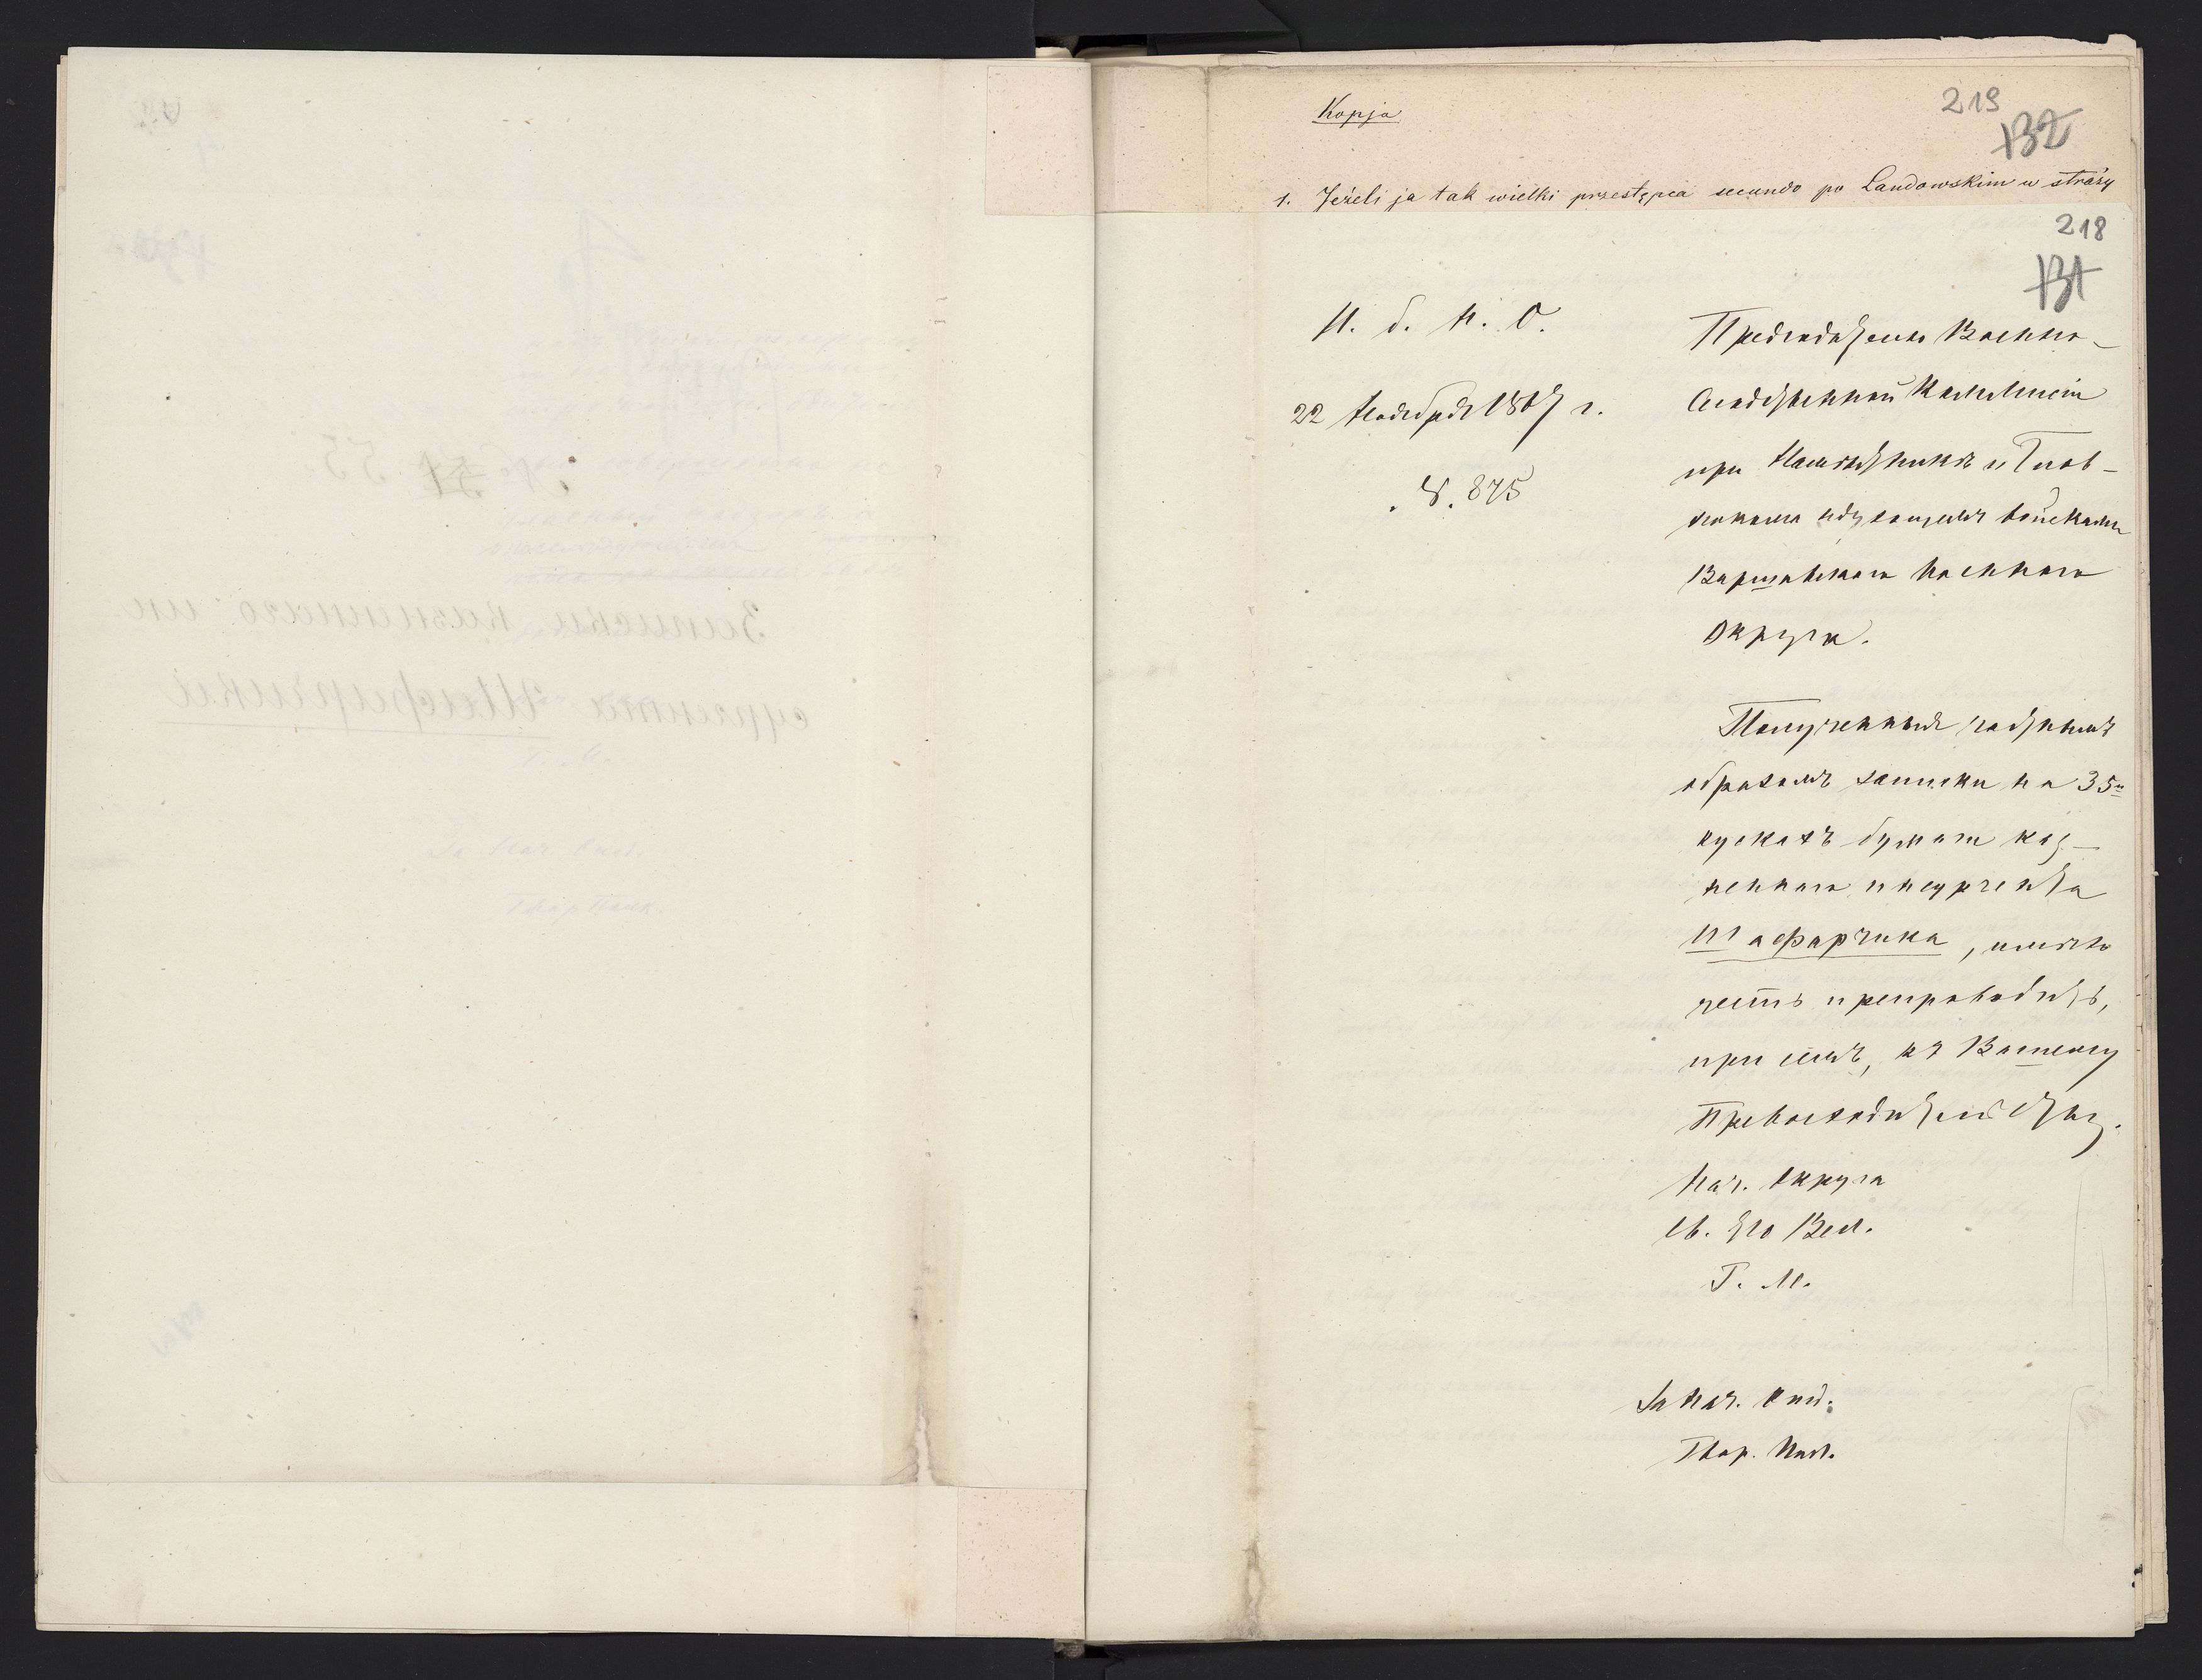 Kopja
219
132
1. Jeżeli ja tak wielki przestępca secundo po Landowskim w straży
218
131
Н. б. К. О.
22 Ноября 1867 г.
№. 875
Председателю Военно-
Следственной Коммисіи
при Намѣстникѣ и Глав-
нокомандующемъ войсками
Варшавскаго военнаго
Округа.
Полученныя частнымъ
образомъ записки на 35и
кускахъ бумаги каз-
неннаго инсургента
Шафарчика, имѣю
честь препроводить,
при семъ, къ Вашему
Превосходительству.
Нач. Округа
Св. Его Вел.
Г. М.
За Нач. Отд.